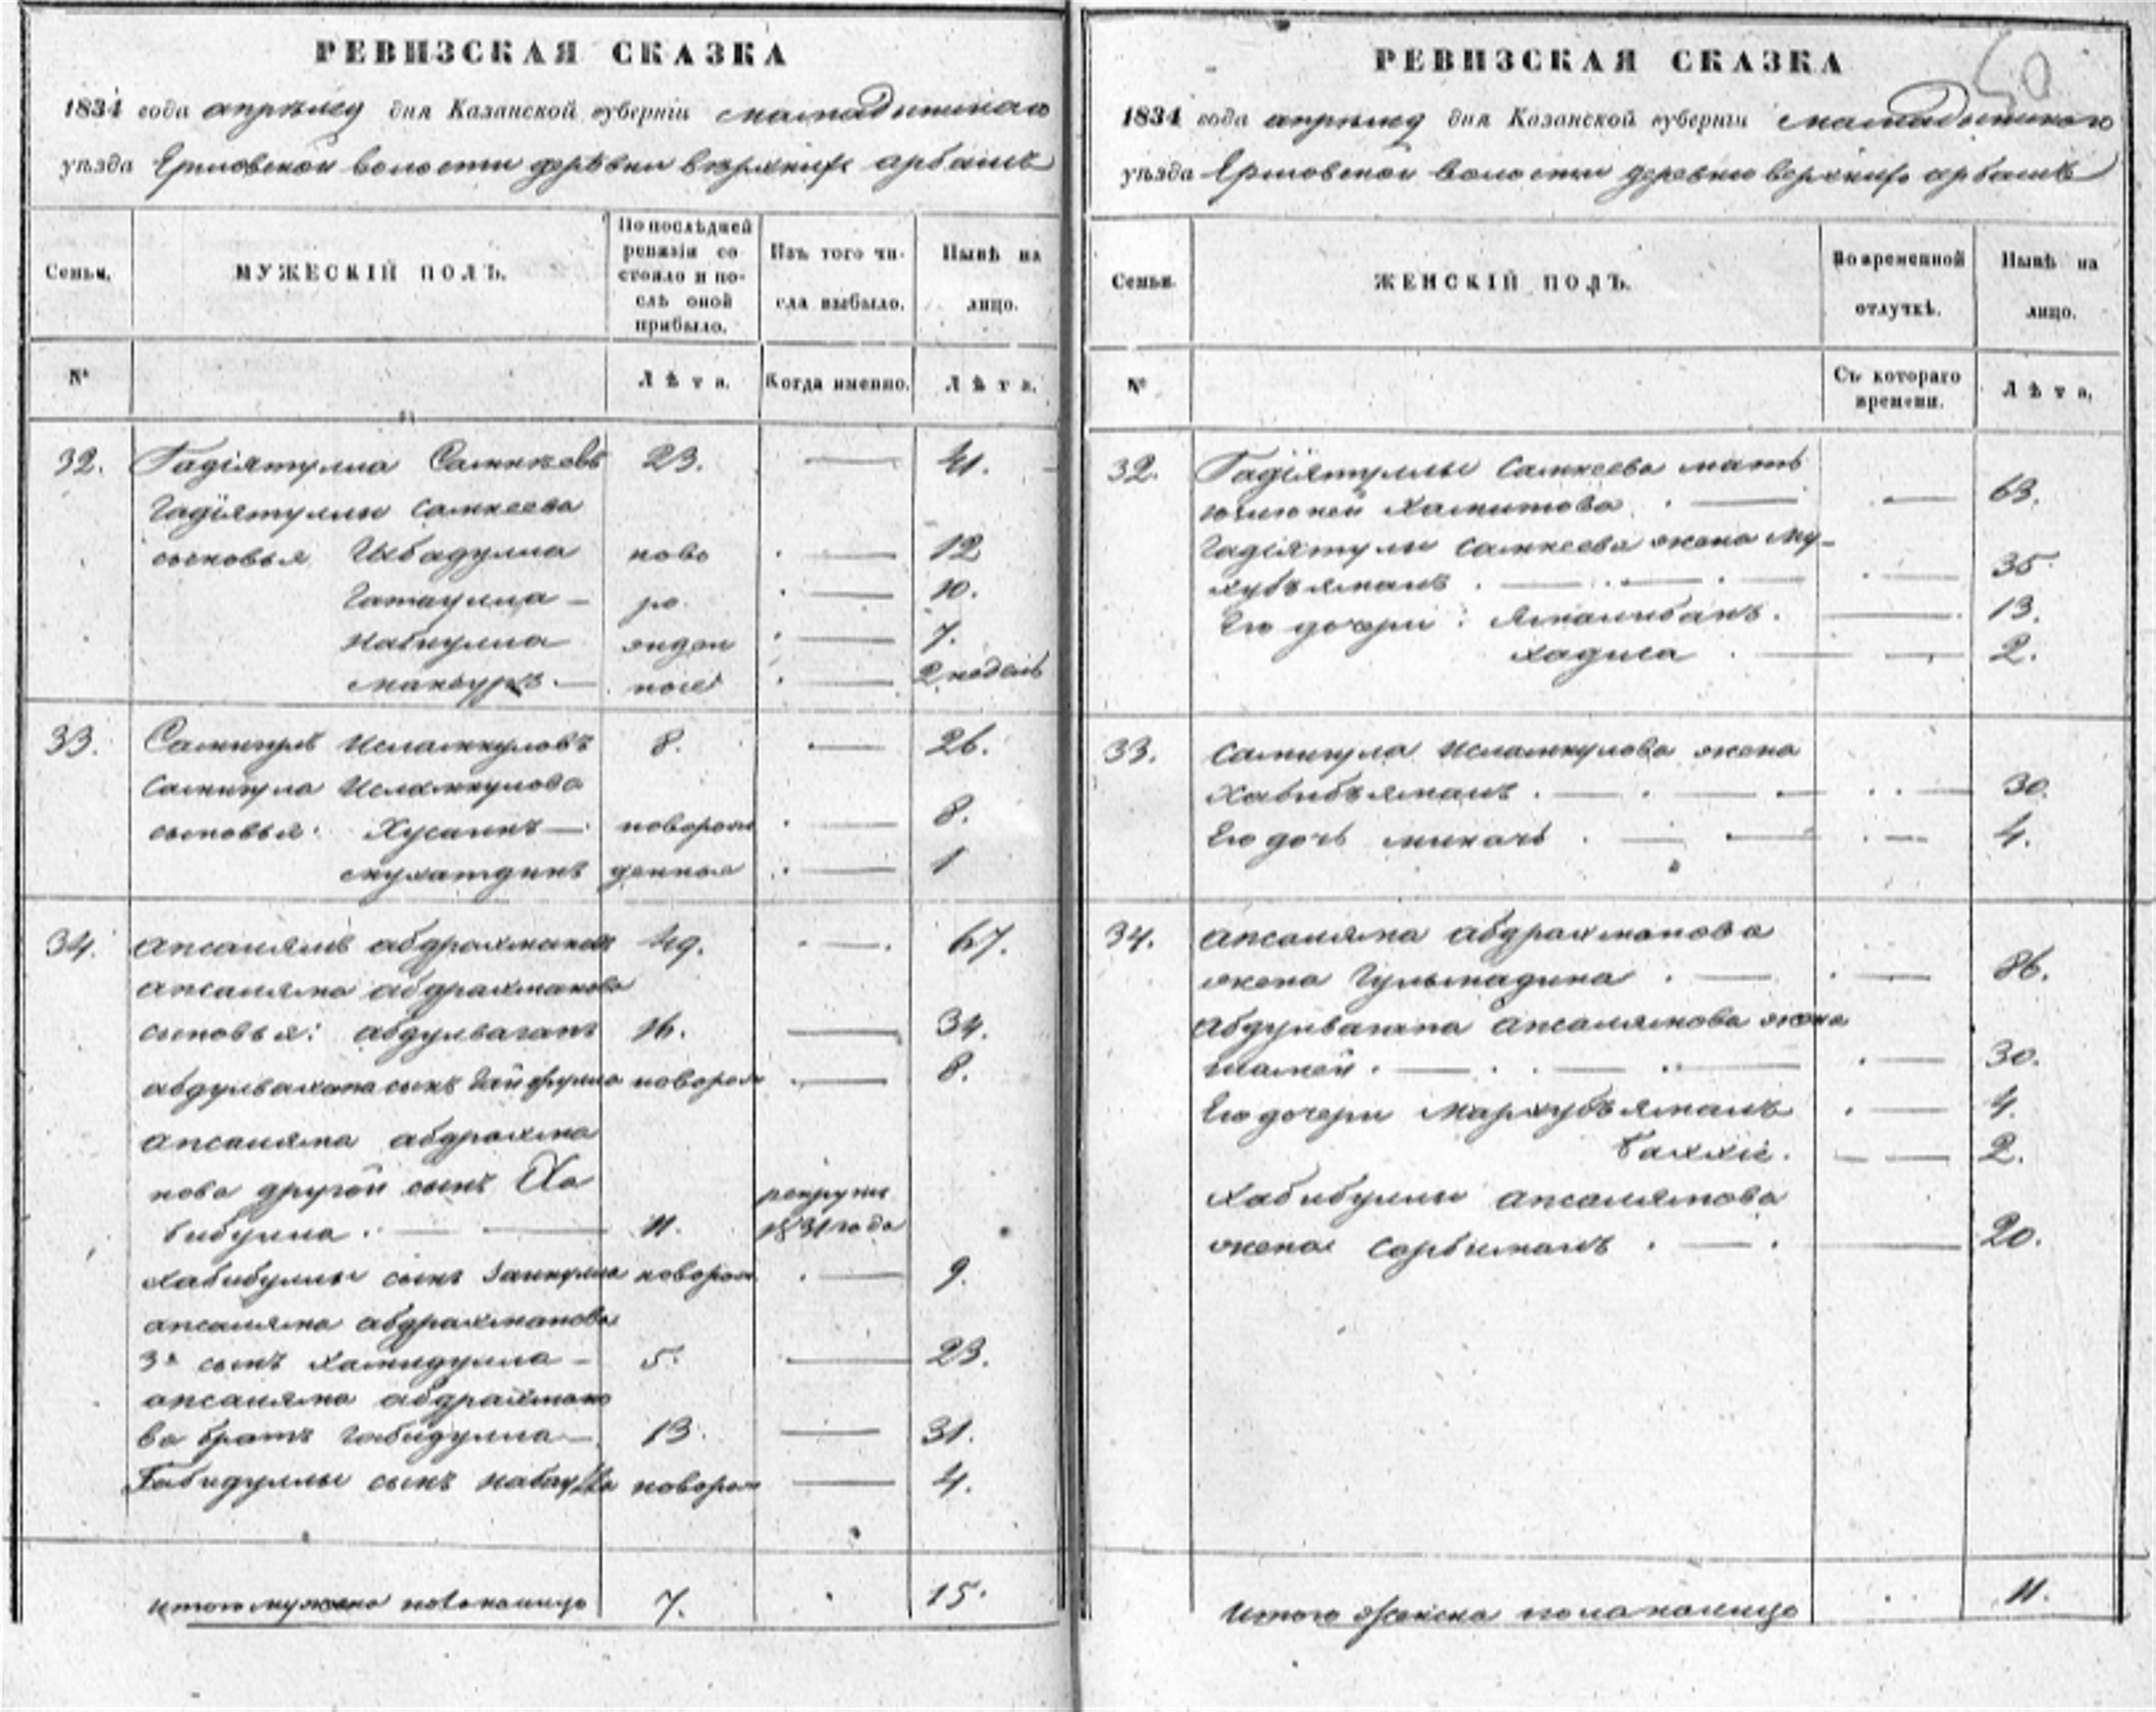 РЕВИЗСКАЯ СКАЗКА
1834 года апрѣля дня Казанской губерніи мамадышскаго
уѣзда Ерыовской волости деревни верхнихъ арбашъ
Семьи.
МУЖЕСКІЙ ПОЛЪ.
По послѣдней
ревизіи со-
стояло и по-
слѣ оной
прибыло.
Изъ того чи-
сла выбыло.
Нынѣ на
лицо.
№
Лѣта.
Когда именно.
Лѣта.
32. Гадіятулла Самкѣевъ 23. 41.
Гадіятуллы Самкеева
сыновья Гибадулла ново 12
Гатаулла ро 10.
Набиулла жден 7.
мансуръ ные 2 недель
33. Самигулъ Исламкуловъ 8. 26.
Самигула Исламкулова
сыновья: Хусаинъ новорож 8.
мухатдинъ денные 1
34. апсалямъ абдрахмановъ 49. 67.
апсаляма абдрахманова
сыновья: абдулвагапъ 16. 34.
абдулвахапа сынъ новорож 8.
апсаляма абдрахма
нова другой сынъ Ха рекруты
бибулла 11. 1831 года
хабибуллы сынъ Заикулла новорож 9.
апсаляма абдрахманова
3й сынъ хамидулла 5. 23.
апсаляма абдрахмано
ва братъ габидулла 13. 31.
Габидуллы сынъ новорож 4.
итого мужска налицо 7. 15.
50
РЕВИЗСКАЯ СКАЗКА
1834 года апрѣля дня Казанской губерніи мамадышскаго
уѣзда Ерыовской волости деревни верхнихъ арбашъ
Семьи.
ЖЕНСКІЙ ПОЛЪ.
Во временной
отлучкѣ.
Нынѣ на
лицо.
№
Съ котораго
времени.
Лѣта.
32. Гадіятуллы Самкеева мать
Хамитова 63.
Гадіятулы Самкеева жена Му-
хубъямалъ 35
Его дочери: Ямалибанъ. 13.
хадиса 2.
33. Самигула Исламкулова жена
Хабибъямалъ 30.
Его дочь 4.
34. апсаляма абдрахманова
жена Гульмадина 86.
абдулвагапа апсалямова жена
шамей 30.
Его дочери Мархубъямалъ 4.
2.
Хабибуллы апсалямова
жена Сарбиямалъ 20.
Итого женска пола налицо 11.